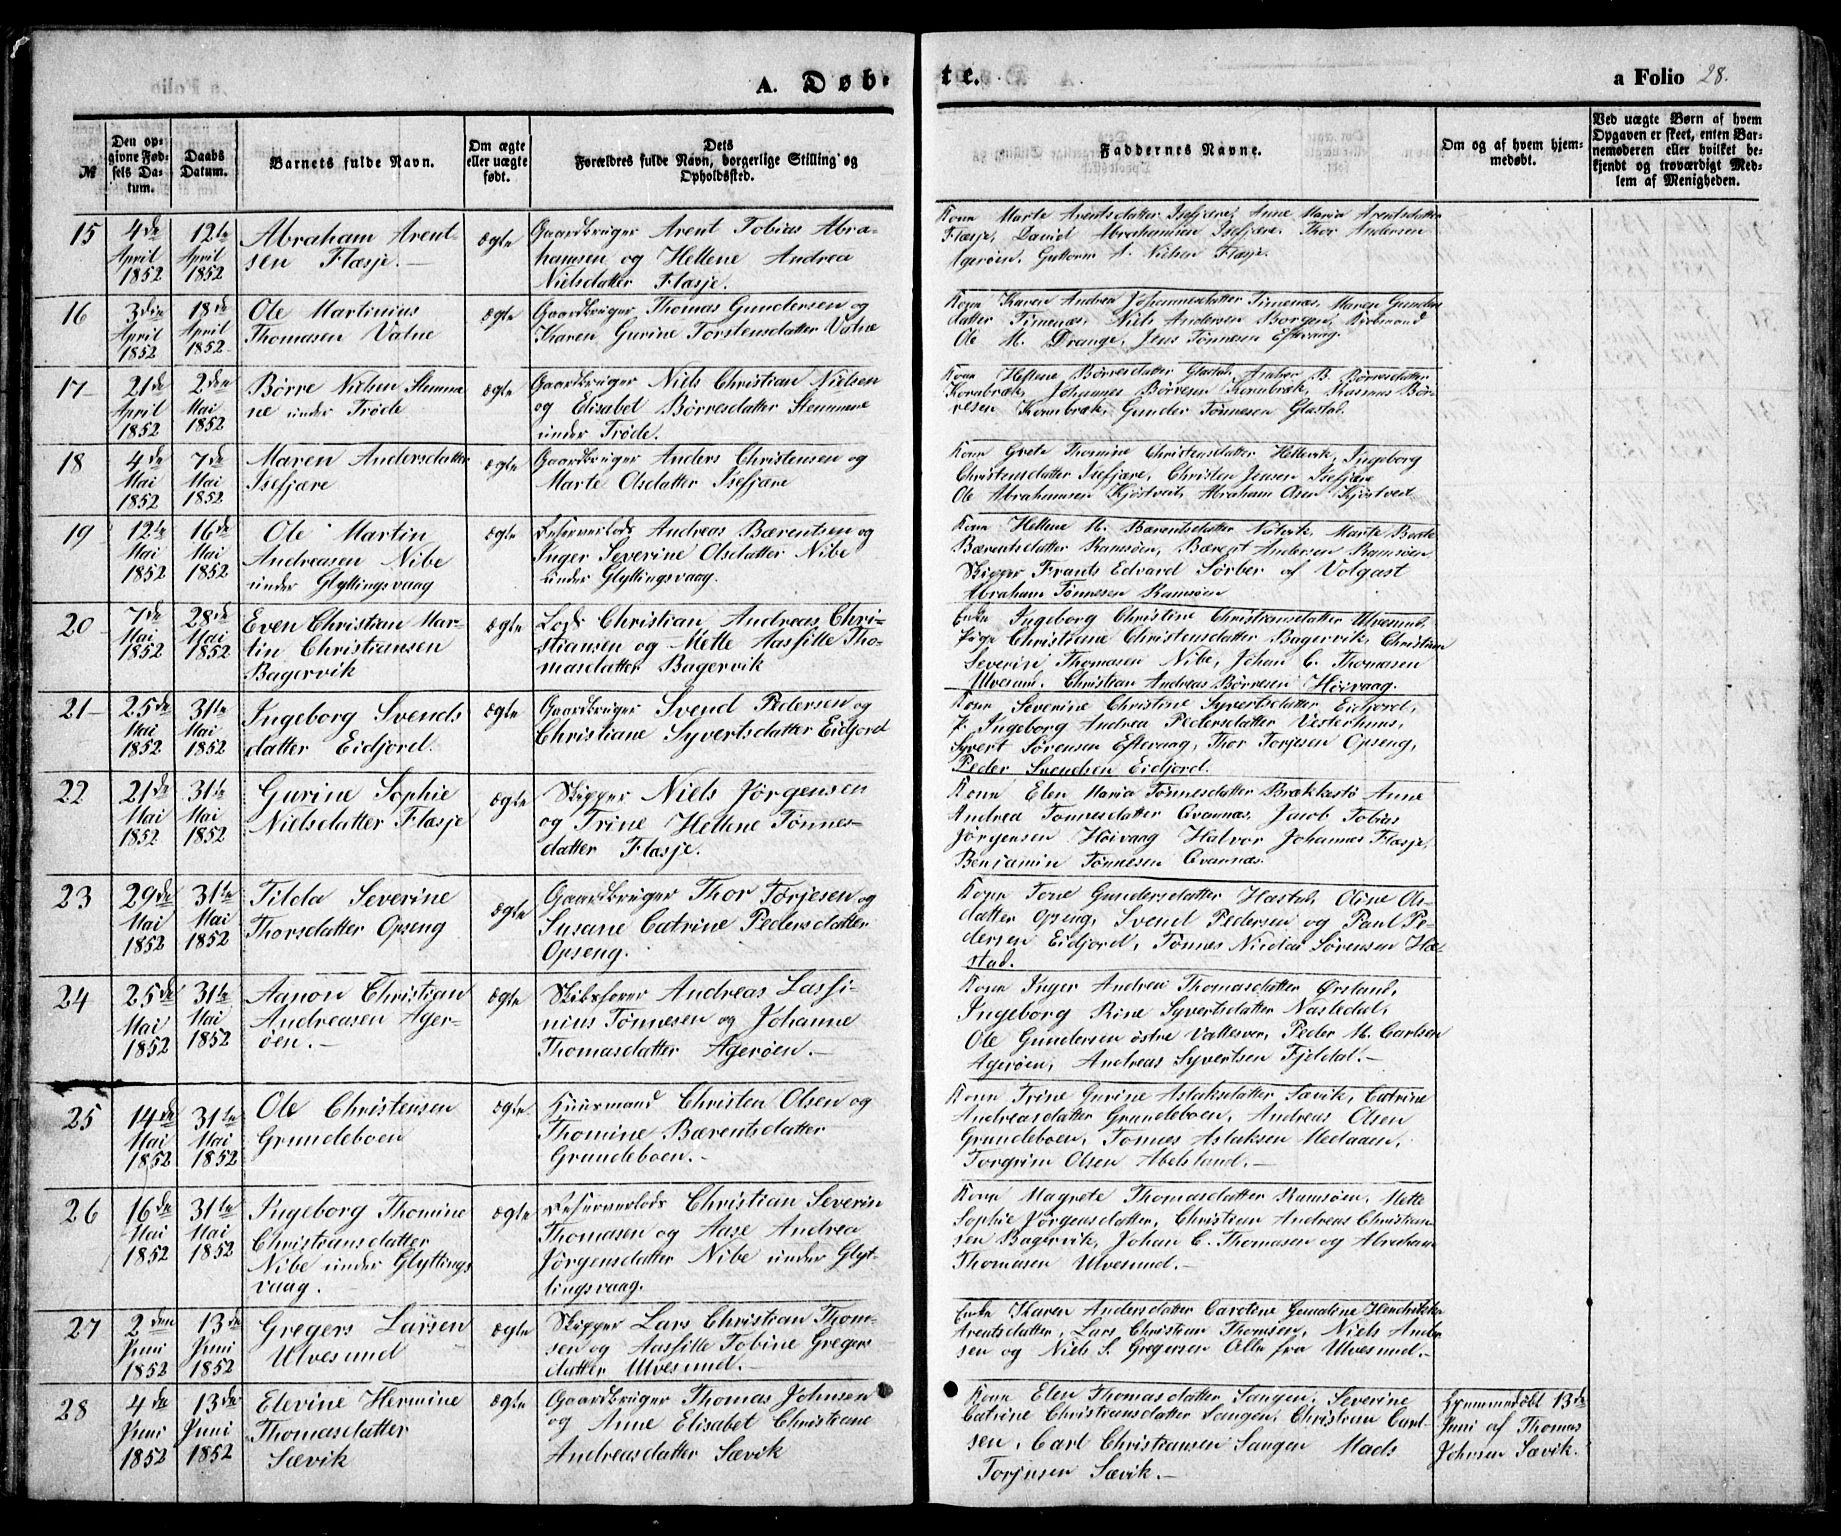 A. Døbte.
a Folio 28.
№
Den opgivne Fødsels Datum.
Daabs Datum.
Barnets fulde Navn.
Om ægte eller uægte født.
Dets Forældres fulde Navn, borgerlige Stilling og Opholdssted.
Faddernes Navne.
Om og af hvem hjemmedøbt.
Ved uægte Børn af hvem Opgaven er skeet, enten Barnemoderen eller hvilket bekjendt og troværdigt Medlem af Menigheden.
15
4de April 1852
12te April 1852
Abraham Arent-
sen Flasje.-
ægte
Gaardbruger Arent Tobias Abra-
hamsen og Hellene Andrea
Nielsdatter Flasje.
Kone Marte Arentsdatter Isefjære, Anne Maria Arentsdatter
Flasje, David Abrahamsen Isefjære. Thor Andersen
Agerøen, Guttorm A. Nielsen Flasje.
16
3die April 1852
18de April 1852
Ole Martinius
Thomasen Valne
ægte
Gaardbruger Thomas Gundersen og
Karen Gurine Torstensdatter Valne
Kone Karen Andrea Johannesdatter Timenæs, Maren Gunders
datter Timenæs, Niels Andersen Borgen,
Ole M. Drange, Jens Tønnesen Eftevaag.
17
21de April 1852
2den Mai 1852
Børre Nielsen Stemme
ne under Trøde
ægte
Gaardbruger Niels Christian Nielsen
og Elisabet Børresdatter Stemmene
under Trøde.
Kone Hellene Børresdatter Glastad, B. Børresdatter
Kornbræk, Johannes Børresen Kornbræk, Rasmus Bør-
resen Kornbræk, Gunder Tønnesen Glastad.
18
4de Mai 1852
7de Mai 1852
Maren Andersdatter
Isefjære
ægte
Gaardbruger Anders Christensen og
Marte Olsdatter Isefjære
Kone Grete Thomine Christensdatter Hellevik, Ingeborg
Christensdatter Isefjære, Christen Jensen Isefjære
Ole Abrahamsen Kjøstveit, Abraham Osen Kjøstveit.
19
12te Mai 1852
16de Mai 1852
Ole Martin
Andreasen Nibe
under Glyttingsvaag
ægte
Reserverlods Andreas Bærentsen og
Inger Severine Olsdatter Nibe
under Glyttingsvaag.
Kone Hellene M. Bærentsdatter Marte
Bærentsdatter Ramsøen, Bærent Andersen Ramsøen
Skipper Frants Edvard Sørber af Volgast
Abraham Tønnesen Ramsøen
20
7de Mai 1852
28de Mai 1852
Even Christian Mar-
tin Christiansen
Bagervik
ægte
Lods Christian Andreas Chri-
stiansen og Mette Aasfille Tho-
masdatter Bagervik
Enke Ingeborg Christine Christiansdatter Ulvesund,
Pige Christiane Christensdatter Bagervik, Christian
Severin Thomasen Nibe, Johan C. Thomasen
Ulvesund. Christian Andreas Børresen Høivaag.
21
25de Mai 1852
31te Mai 1852
Ingeborg Svends
datter Eidjord.
ægte
Gaardbruger Svend Pedersen og
Christiane Syvertsdatter Eidjord
Kone Severine Christine Syvertsdatter Eidjord,
P. Ingeborg Andrea Pedersdatter Vesterhuus,
Syvert Sørensen Eftevaag, Thor Torjesen Opseng,
Peder Svendsen Eidjord.
22
21de Mai 1852
31te Mai 1852
Gurine Sophie
Nielsdatter Flasje
ægte
Skipper Niels Jørgensen
og Trine Hellene Tønnes-
datter Flasje.
Kone Elen Maria Tønnesdatter Brækkestø Anne
Andrea Tønnesdatter Qvannæs, Jacob Tobias
Jørgensen Høivaag Halvor Johannes Flasje,
Benjamin Tønnesen Qvannæs.
23
29de Mai 1852
31te Mai 1852
Tilda Severine
Thorsdatter Opseng
ægte
Gaardbruger Thor Torjesen og
Susane Catrine Pedersdatter
Opseng.
Kone Tone Gundersdatter Hæstad, Oline Ols-
datter Opseng, Svend Pedersen og Paul Pe-
dersen Eidjord, Tønnes Nicolai Sørensen Hæ-
stad.
24
25de Mai 1852
31te Mai 1852
Aanon Christian
Andreasen Ager-
øen.-
ægte
Skibsfører Andreas Lassi-
nius Tønnesen og Johanne
Thomasdatter Agerøen.-
Kone Inger Andrea Thomasdatter Ørsland,
Ingeborg Rine Syvertsdatter Nasledal,
Ole Gundersen østre Vallesver, Peder M. Carlsen
Agerøen, Andreas Syvertsen Fjeldal.-
25
14de Mai 1852
31te Mai 1852
Ole Christensen
Grundeboen
ægte
Huusmand Christen Olsen og
Thomine Bærentsdatter
Grundeboen.-
Kone Trine Gurine Aslaksdatter Sævik, Catrine
Andreasdatter Grundeboen, Andreas Olsen
Grundeboen, Tønnes Aslaksen Medaaen,
Torgrim Olsen Abelsland.-
26
16de Mai 1852
31te Mai 1852
Ingeborg Thomine
Christiansdatter
Nibe under Glyttings
vaag.
ægte
Reserverlods Christian Severin
Thomasen og Aase Andrea
Jørgensdatter Nibe under Glyt-
tingsvaag.
Kone Magrete Thomasdatter Ramsøen, Mette
Sophie Jørgensdatter, Christian Andreas Christian
sen Bagervik, Johan C. Thomasen og Abraham
Thomasen Ulvesund.-
27
2den Juni 1852
13de Juni 1852
Gregers Larsen
Ulvesund
ægte
Skipper Lars Christian Thom-
sen og Aasfille Tobine Gregers
datter Ulvesund.-
Enke Karen Andersdatter Carolene Gundine Hendrikke
Arentsdatter, Lars Christian Thomsen, Niels Ander
sen og Niels S. Gregersen Alle fra Ulvesund.-
28
4de Juni 1852
13de Juni 1852
Elevine Hermine
Thomasdatter
Sævik
ægte
Gaardbruger Thomas Johnsen
og Anne Elisabet Christiane
Andreasdatter Sævik
Kone Elen Thomasdatter Sangen, Severine
Catrine Christiansdatter Sangen, Christian Carl-
sen, Carl Christiansen Sangen Mads
Torjusen Sævik.-
Hjemmedøbt 13de
Juni af Thomas
Johnsen Sævik.